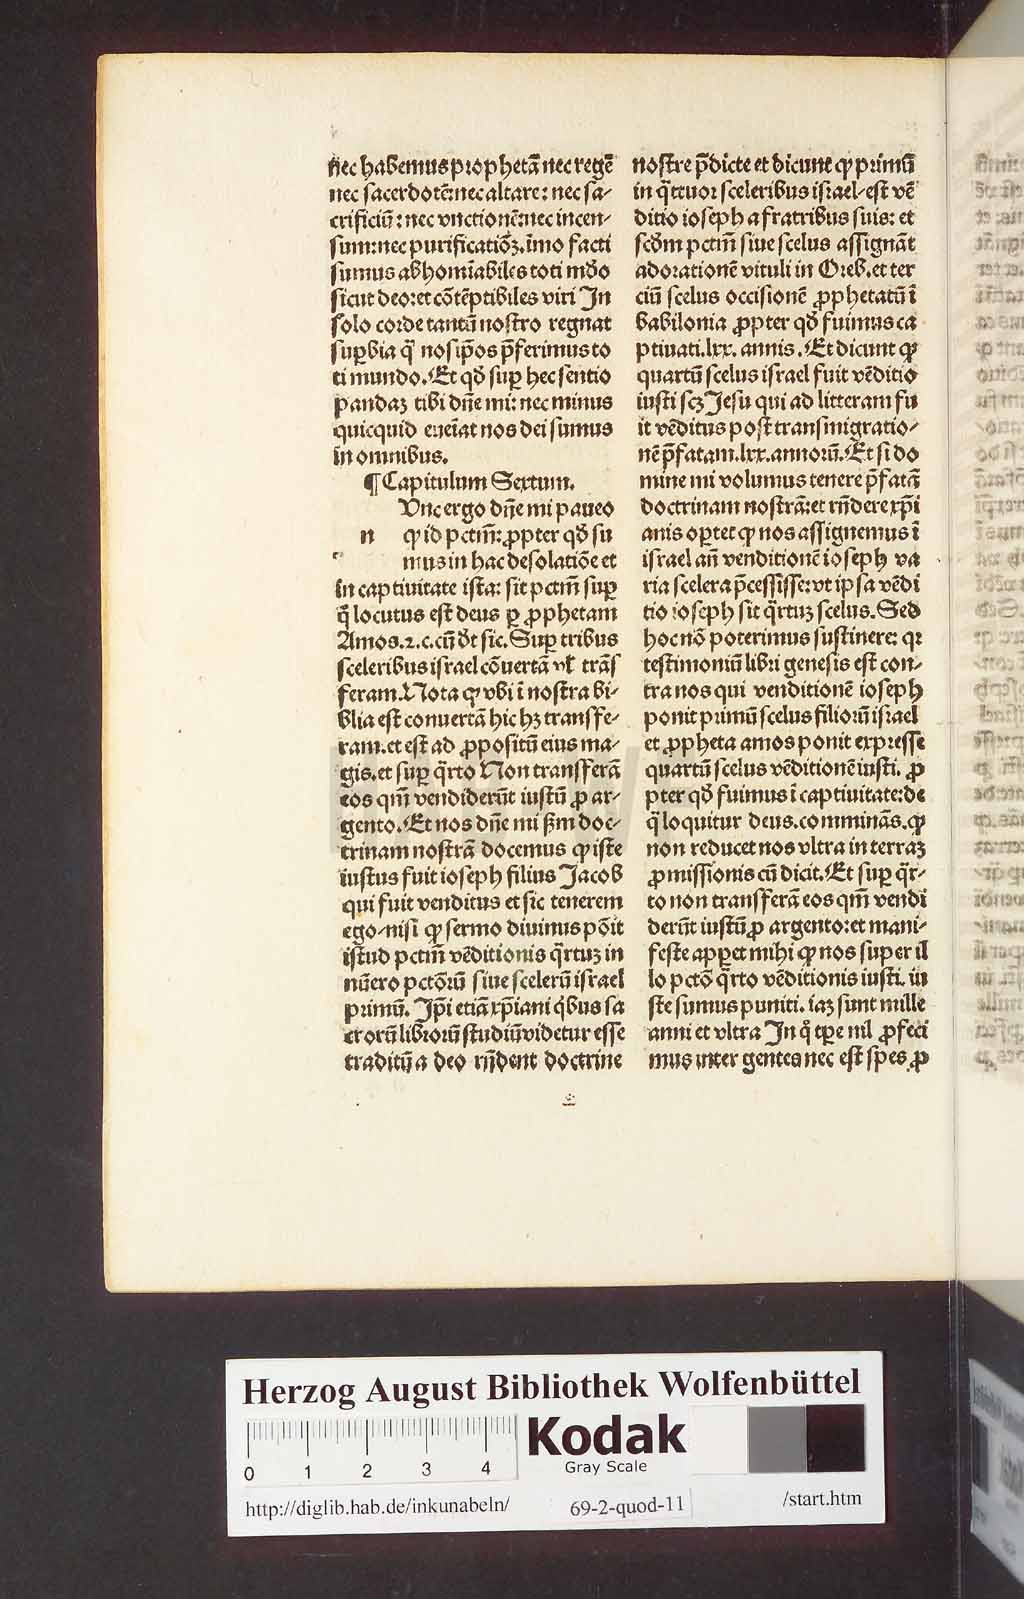 nec habemus prophetā nec regē
nec sacerdotē: nec altare: nec sa-
crificiū: nec vnctionē: nec incen-
sum: nec purificatiōꝫ. īmo facti
sumus abhomīabiles toti mūdo
sicut deo: et cōtēptibiles viri In
solo corde tantū nostro regnat
suꝑbia q̄ nos ip̄os p̄ferimus to
ti mundo. Et qđ suꝑ hec sentio
pandaꝫ tibi dn̄e mi: nec minus
quicquid eueīat nos dei sumus
in omnibus.
¶ Capitulum Sextum.
Vnc ergo dn̄e mi paueo
n ꝙ id pctm̄: ꝓpter qđ su
mus in hac desolatiōe et
in captiuitate ista: sit pctm̄ suꝑ
q̄ locutus est deus ꝑ ꝓphetam
Amos. 2. c. cū dt̄ sic. Suꝑ tribus
sceleribus israel cōuertā vl̄ trāſ
feram. Nota ꝙ vbi ī nostra bi-
blia est conuertā hic hꝫ transfe-
ram. et est ad ꝓpositū eius ma-
gis. et suꝑ q̄rto Non transferā
eos qm̄ vendiderūt iustū ꝓ ar-
gento. Et nos dn̄e mi ẜm doc-
trinam nostrā docemus ꝙ iste
iustus fuit ioseph filius Jacob
qui fuit venditus et sic tenerem
ego. nisi ꝙ sermo diuinus pōit
istud pctm̄ vēditionis q̄rtuꝫ in
nūero pctōrū siue scelerū israel
primū. Ip̄i etiā xp̄iani qībus sa
crorū librorū studiū videtur esse
traditū a deo rn̄dent doctrine
nostre p̄dicte et dicunt ꝙ primū
in q̄ttuor sceleribus israel est vē
ditio ioseph a fratribus suis: et
scđm pctm̄ siue scelus assignāt
adorationē vituli in Oreb. et ter
ciū scelus occisionē ꝓphetatū ī
babilonia ꝓpter qđ fuimus ca
ptiuati. lxx. annis. Et dicunt ꝙ
quartū scelus israel fuit vēditio
iusti scꝫ Jesu qui ad litteram fu
it vēditus post transmigratio-
nē p̄fatam. lxx. annorū. Et si do
mine mi volumus tenere p̄fatā
doctrinam nostrā: et rn̄dere xp̄i
anis oꝑtet ꝙ nos assignemus ī
israel an̄ venditionē ioseph va
ria scelera p̄cessisse: vt ipsa vēdi
tio ioseph sit q̄rtuꝫ scelus. Sed
hoc nō poterimus sustinere: qꝛ
testimoniū libri genesis est con-
tra nos qui venditionē ioseph
ponit primū scelus filiorū israel
et ꝓpheta amos ponit expresse
quartū scelus vēditionē iusti. ꝓ
pter qđ fuimus ī captiuitate: de
q̄ loquitur deus. comminās. ꝙ
non reducet nos vltra in terraꝫ
ꝓmissionis cū dicit. Et suꝑ q̄r-
to non transferā eos qm̄ vendi
derūt iustū ꝓ argento: et mani-
feste apꝑet mihi ꝙ nos super il
lo pctō q̄rto vēditionis iusti. iu
ste sumus puniti. iaꝫ sunt mille
anni et vltra In q̊ tꝑe nil ꝓfeci
mus inter gentes nec est spes ꝓ
Herzog August Bibliothek Wolfenbüttel
0 1 2 3 4
Kodak
Gray Scale
http://diglib.hab.de/inkunabeln/ 69-2-quod-11 /start.htm